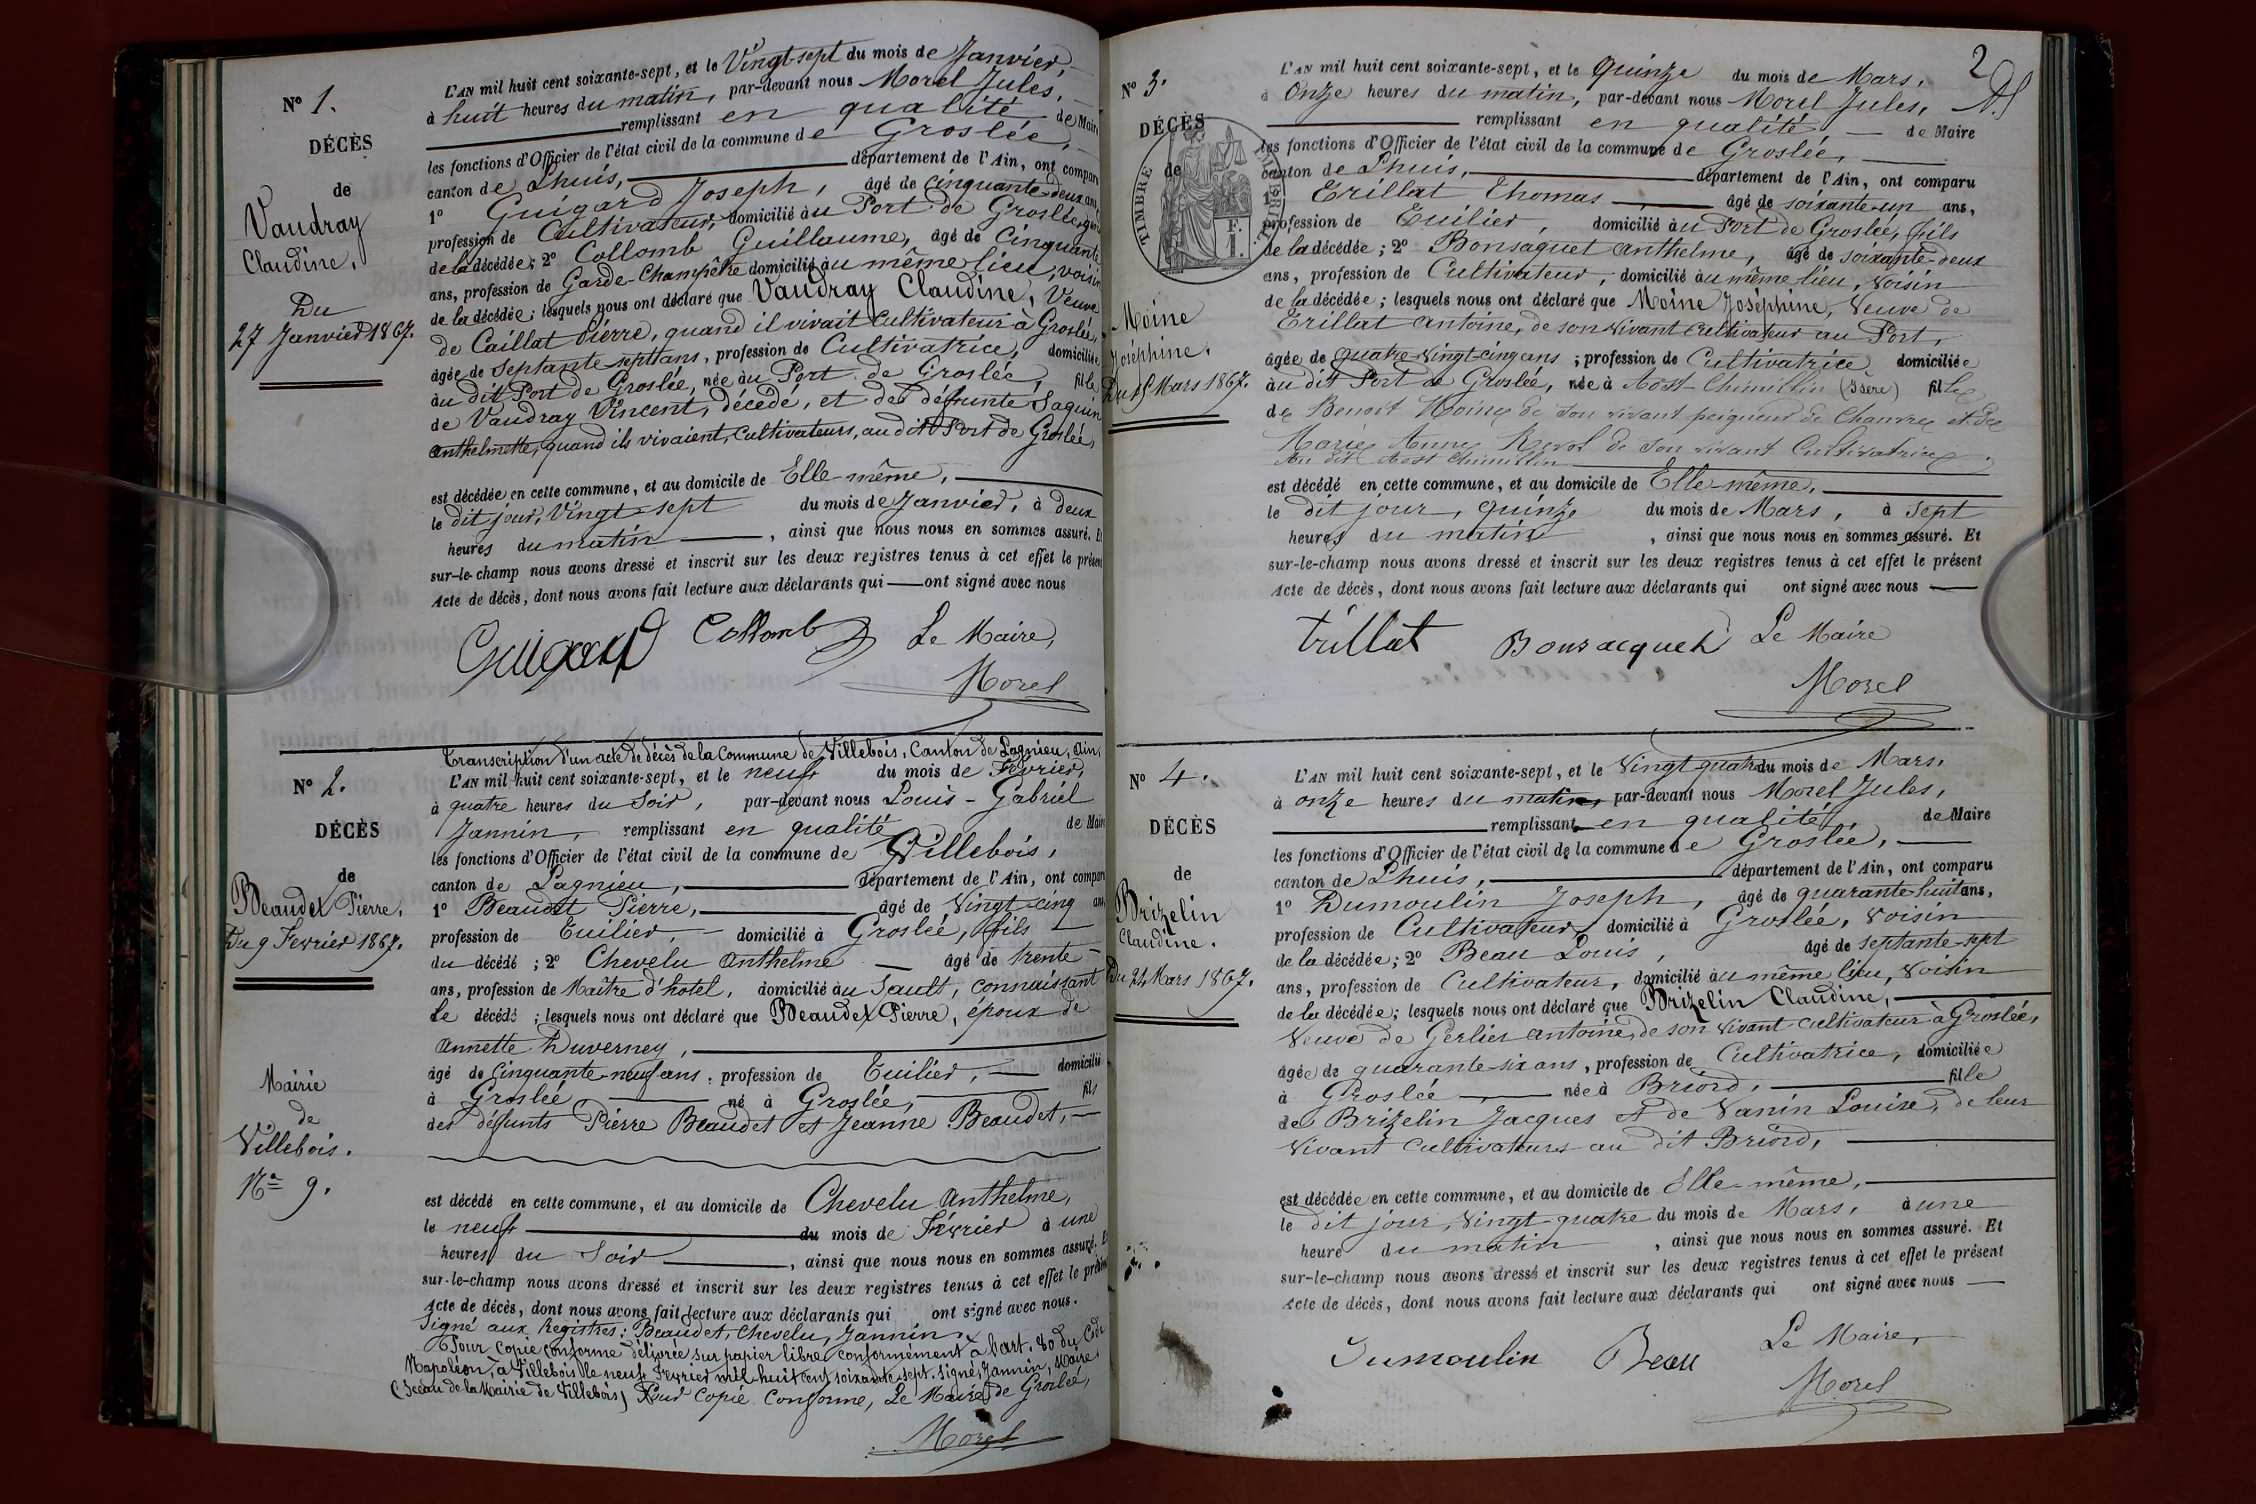 N° 1.
DÉCÈS
de
Vaudray
Claudine,
Du
27 Janvier 1867.
L'AN mil huit cent soixante-sept, et le Vingt-sept du mois de Janvier,
à huit heures du matin, par-devant nous Morel Jules,
remplissant en qualité de Maire
les fonctions d'Officier de l'état civil de la commune de Groslée,
canton de Lhuis, département de l'Ain, ont comparu
1° Guigard Joseph, âgé de cinquante-deux ans,
profession de Cultivateur, domicilié au Port de Groslée,
de la décédée; 2° Collomb Guillaume, âgé de Cinquante
ans, profession de Garde-Champêtre domicilié au même lieu, voisin
de la décédée; lesquels nous ont déclaré que Vaudray Claudine, Veuve
de Caillat Pierre, quand il vivait Cultivateur à Groslée,
âgée de Septante-sept ans, profession de Cultivatrice, domiciliée
au dit Port de Groslée, née au Port de Groslée, fille
de Vaudray Vincent, décédé, et de défunte Saguin
Anthelmette, quand ils vivaient, Cultivateurs, au dit Port de Groslée,
est décédée en cette commune, et au domicile de Elle-même,
le dit jour, Vingt-sept du mois de Janvier, à deux
heures du matin, ainsi que nous nous en sommes assuré. Et
sur-le-champ nous avons dressé et inscrit sur les deux registres tenus à cet effet le présent
Acte de décès, dont nous avons fait lecture aux déclarants qui ont signé avec nous
Guigard Collomb Le Maire,
Morel
N° 2.
DÉCÈS
de
Beaudet Pierre,
Du 9 Fevrier 1867.
Mairie
de
Villebois.
N° 9.
Transcription d'un acte de décès de la Commune de Villebois, Canton de Lagnieu, Ain,
L'AN mil huit cent soixante-sept, et le neuf du mois de Fevrier,
à quatre heures du Soir, par-devant nous Louis-Gabriel
Jannin, remplissant en qualité de Maire
les fonctions d'Officier de l'état civil de la commune de Villebois,
canton de Lagnieu, département de l'Ain, ont comparu
1° Beaudet Pierre, âgé de Vingt-cinq ans
profession de Tuilier, domicilié à Groslée, fils
du décédé; 2° Chevelu Anthelme âgé de trente
ans, profession de Maître d'hotel, domicilié au Sault, connaissant
Le décédé; lesquels nous ont déclaré que Beaudet Pierre, époux de
Annette Duverney,
âgé de Cinquante-neuf ans, profession de Tuilier, domicilié
à Groslée né à Groslée, fils
des défunts Pierre Beaudet et Jeanne Beaudet,
est décédé en cette commune, et au domicile de Chevelu Anthelme,
le neuf du mois de Février à une
heures du Soir, ainsi que nous nous en sommes assuré. Et
sur-le-champ nous avons dressé et inscrit sur les deux registres tenus à cet effet le présent
Acte de décès, dont nous avons fait lecture aux déclarants qui ont signé avec nous.
Signé aux Registres: Beaudet, Chevelu, Jannin.
Pour copie conforme délivrée sur papier libre conformément à l'art. 80 du Code
Napoléon, à Villebois le neuf Fevrier mil huit cent soixante-sept. Signé, Jannin, Maire
(Sceau de la Mairie de Villebois) Pour Copie Conforme, Le Maire de Groslée,
Morel
2
N° 3.
DÉCÈS
de
TIMBRE IMPÉRIAL
1 F.
Moine
Joséphine.
Du 15 Mars 1867.
L'AN mil huit cent soixante-sept, et le Quinze du mois de Mars,
à Onze heures du matin, par-devant nous Morel Jules,
remplissant en qualité de Maire
les fonctions d'Officier de l'état civil de la commune de Groslée,
canton de Lhuis, département de l'Ain, ont comparu
1° Trillat Thomas âgé de soixante-un ans,
profession de Tuilier, domicilié au Port de Groslée, fils
de la décédée; 2° Bonsaquet Anthelme, âgé de soixante-deux
ans, profession de Cultivateur, domicilié au même lieu, voisin
de la décédée; lesquels nous ont déclaré que Moine Joséphine, Veuve de
Trillat Antoine, de son vivant cultivateur au Port,
âgée de quatre-vingt-cinq ans; profession de Cultivatrice domiciliée
au dit Port de Groslée, née à Aost-Chimillin (Isère) fille
de Benoit Moine de son vivant peigneur de Chanvre et de
Marie Anne Revol de son vivant Cultivatrice
au dit Aost Chimillin
est décédé en cette commune, et au domicile de Elle-même,
le dit jour, quinze du mois de Mars, à sept
heures du matin, ainsi que nous nous en sommes assuré. Et
sur-le-champ nous avons dressé et inscrit sur les deux registres tenus à cet effet le présent
Acte de décès, dont nous avons fait lecture aux déclarants qui ont signé avec nous
trillat Bonsacquet Le Maire
Morel
N° 4.
DÉCÈS
de
Brizelin
Claudine.
Du 24 Mars 1867.
L'AN mil huit cent soixante-sept, et le Vingt-quatre du mois de Mars,
à onze heures du matin, par-devant nous Morel Jules,
remplissant en qualité, de Maire
les fonctions d'Officier de l'état civil de la commune de Groslée,
canton de Lhuis, département de l'Ain, ont comparu
1° Dumoulin Joseph, âgé de quarante-huit ans,
profession de Cultivateur, domicilié à Groslée, Voisin
de la décédée; 2° Beau Louis, âgé de septante-sept
ans, profession de Cultivateur, domicilié au même lieu, Voisin
de la décédée; lesquels nous ont déclaré que Brizelin Claudine,
Veuve de Gerlier Antoine, de son vivant cultivateur à Groslée,
âgée de quarante-six ans, profession de Cultivatrice, domiciliée
à Groslée née à Briord, fille
de Brizelin Jacques et de Vanin Louise, de leur
vivant Cultivateurs au dit Briord,
est décédée en cette commune, et au domicile de Elle-même,
le dit jour, vingt-quatre du mois de Mars, à une
heure du matin, ainsi que nous nous en sommes assuré. Et
sur-le-champ nous avons dressé et inscrit sur les deux registres tenus à cet effet le présent
Acte de décès, dont nous avons fait lecture aux déclarants qui ont signé avec nous
Dumoulin Beau Le Maire,
Morel